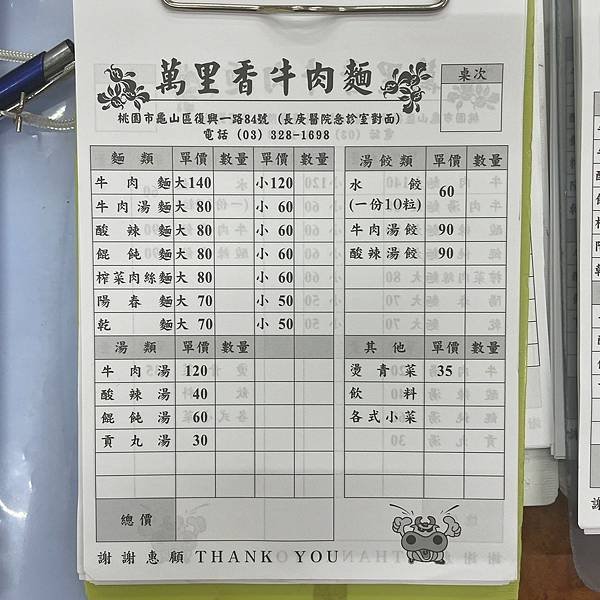 萬里香牛肉麵
桌次
桃園市龜山區復興一路84號 (長庚醫院急診室對面)
電話 (03) 328-1698
麵類 單價 數量 單價 數量
牛肉麵 大140 小120
牛肉湯麵 大 80 小 60
酸辣麵 大 80 小 60
餛飩麵 大 80 小 60
榨菜肉絲麵 大 80 小 60
陽春麵 大 70 小 50
乾麵 大 70 小 50
湯類 單價 數量
牛肉湯 120
酸辣湯 40
餛飩湯 60
貢丸湯 30
總價
湯餃類 單價 數量
水餃 60
(一份10粒)
牛肉湯餃 90
酸辣湯餃 90
其他 單價 數量
燙青菜 35
飲料
各式小菜
謝謝惠顧 THANK YOU